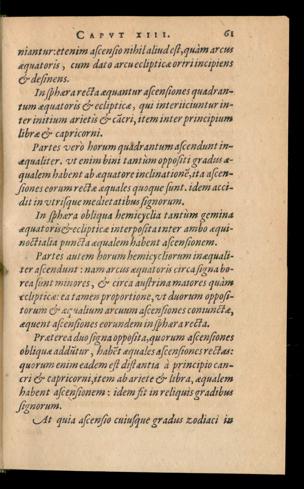 CAPVT XIII. 61
niantur: etenim ascensio nihil aliud est, quàm arcus
æquatoris, cum dato arcu eclipticæ oriri incipiens
& desinens.
In sphæra recta æquantur ascensiones quadran-
tum æquatoris & eclipticæ, qui interiiciuntur in-
ter initium arietis & cãcri, item inter principium
libræ & capricorni.
Partes verò horum quàdrantum ascendunt in-
æqualiter. vt enim bini tantùm oppositi gradus æ-
qualem habent ab æquatore inclinationẽ, ita ascen-
siones eorum rectæ æquales quoque sunt. idem acci-
dit in vtrisque medietatibus signorum.
In sphæra obliqua hemicyclia tantùm gemina
æquatoris & eclipticæ interposita inter ambo æqui-
noctialia puncta æqualem habent ascensionem.
Partes autem horum hemicycliorum inæquali-
ter ascendunt: nam arcus æquatoris circa signa bo-
rea sunt minores, & circa austrina maiores quàm
eclipticæ: ea tamen proportione, vt duorum opposi-
torum & æqualium arcuum ascensiones coniunctæ,
æquent ascensiones eorundem in sphæra recta.
Præterea duo signa opposita, quorum ascensiones
obliquæ addũtur, habẽt æquales ascensiones rectas:
quorum enim eadem est distantia à principio can-
cri & capricorni, item ab ariete & libra, æqualem
habent ascensionem: idem fit in reliquis gradibus
signorum.
At quia ascensio cuiusque gradus zodiaci in